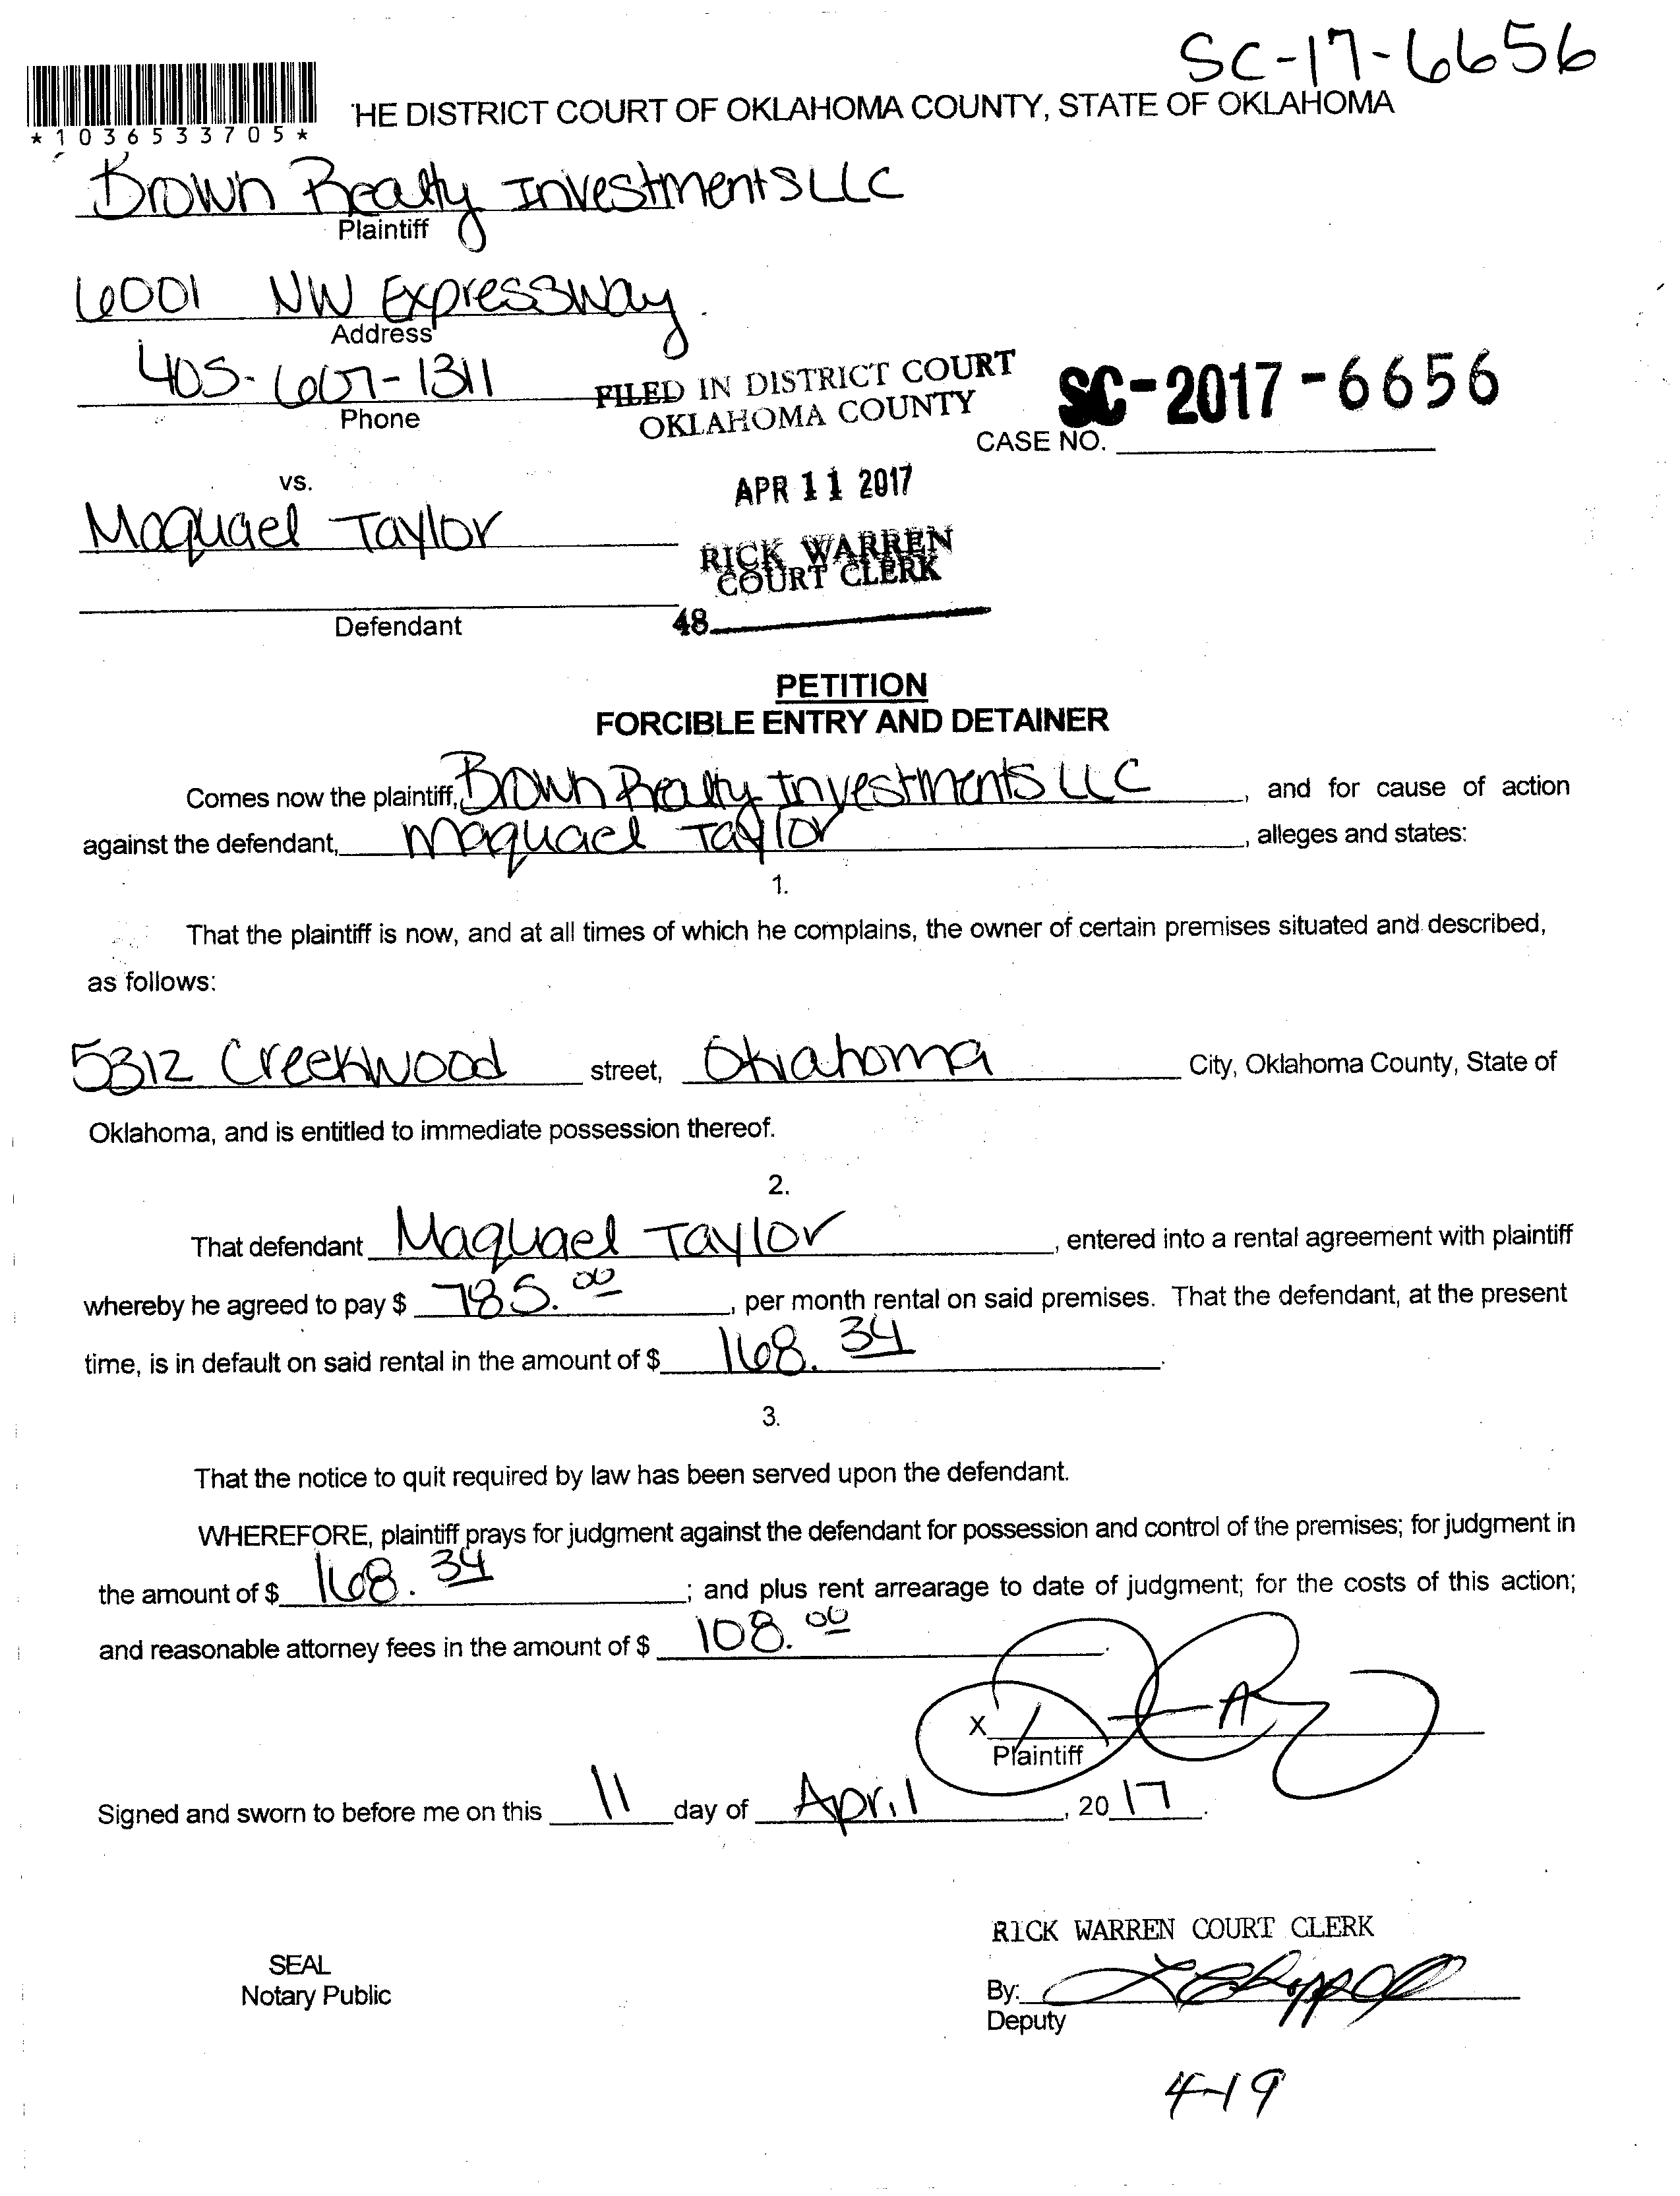 SC-17-6656
*1036533705*
HE DISTRICT COURT OF OKLAHOMA COUNTY, STATE OF OKLAHOMA
Brown Realty Investments LLC
Plaintiff
6001 NW Expressway
Address
405-607-1311
Phone
FILED IN DISTRICT COURT
OKLAHOMA COUNTY
SC-2017-6656
CASE NO.
vs.
APR 11 2017
Maquael Taylor
RICK WARREN
COURT CLERK
Defendant
48
PETITION
FORCIBLE ENTRY AND DETAINER
Comes now the plaintiff, Brown Realty Investments LLC, and for cause of action
against the defendant, Maquael Taylor, alleges and states:
1.
That the plaintiff is now, and at all times of which he complains, the owner of certain premises situated and described,
as follows:
5312 Creekwood street, Oklahoma City, Oklahoma County, State of
Oklahoma, and is entitled to immediate possession thereof.
2.
That defendant Maquael Taylor, entered into a rental agreement with plaintiff
whereby he agreed to pay $ 785.00, per month rental on said premises. That the defendant, at the present
time, is in default on said rental in the amount of $ 168.34.
3.
That the notice to quit required by law has been served upon the defendant.
WHEREFORE, plaintiff prays for judgment against the defendant for possession and control of the premises; for judgment in
the amount of $ 168.34; and plus rent arrearage to date of judgment; for the costs of this action;
and reasonable attorney fees in the amount of $ 108.00.
X
Plaintiff
Signed and sworn to before me on this 11 day of April, 2017.
RICK WARREN COURT CLERK
SEAL
Notary Public
By:
Deputy
4-19